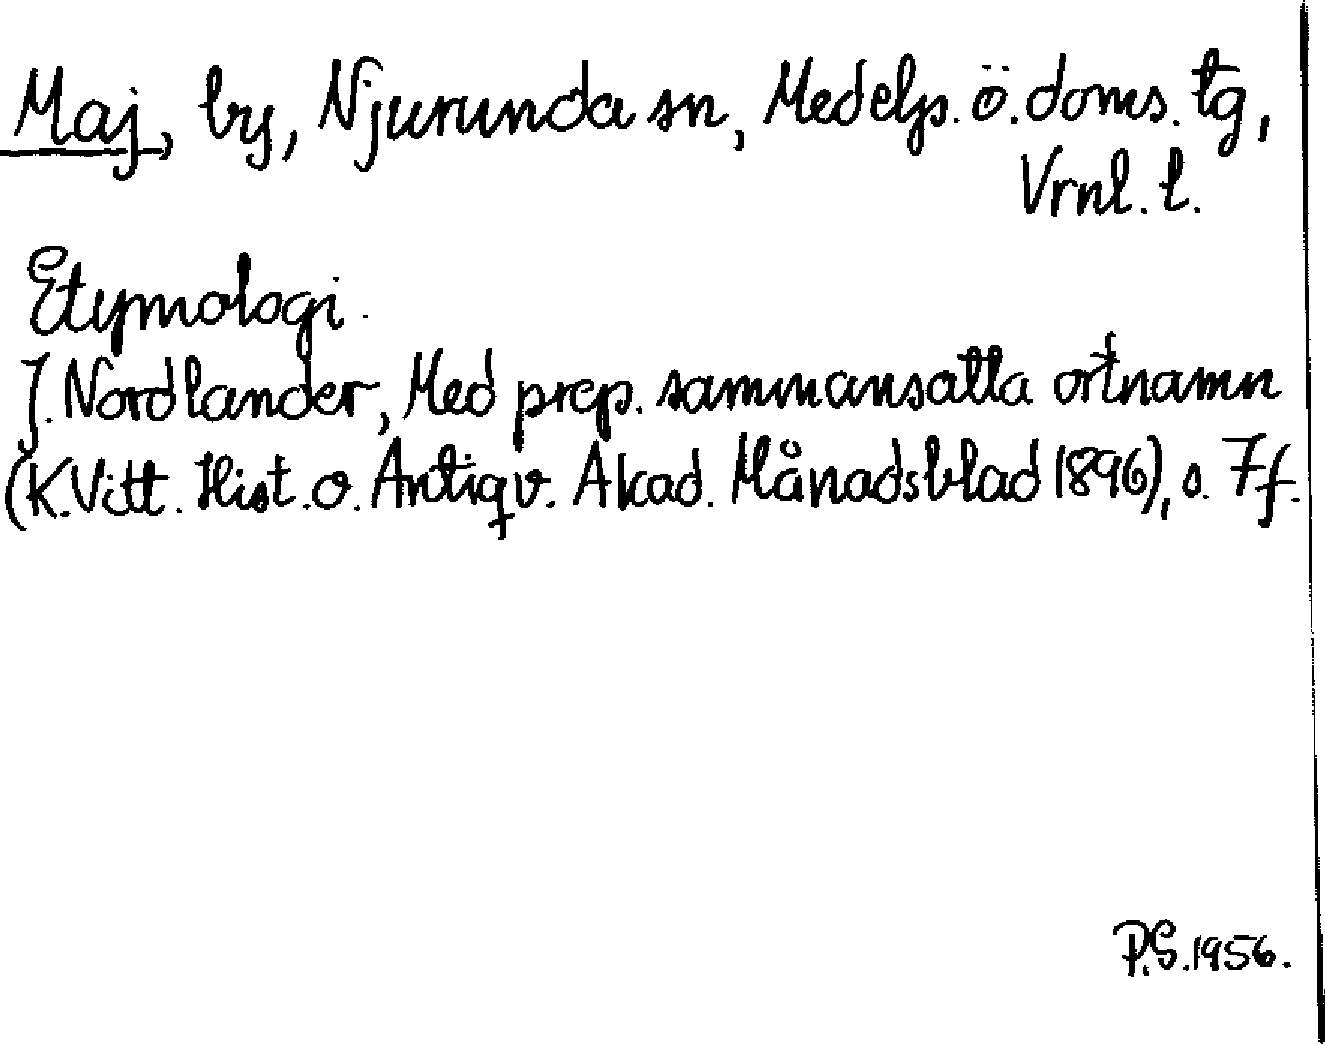 Maj, by, Njurunda sn, Medelp. ö. doms. tg,
Vrnl. l.
Etymologi.
J. Nordlander, Med prep. sammansatta ortnamn
(K. Vitt. Hist. o. Antiqv. Akad. Månadsblad 1896), s. 7 f.
P.S. 1956.